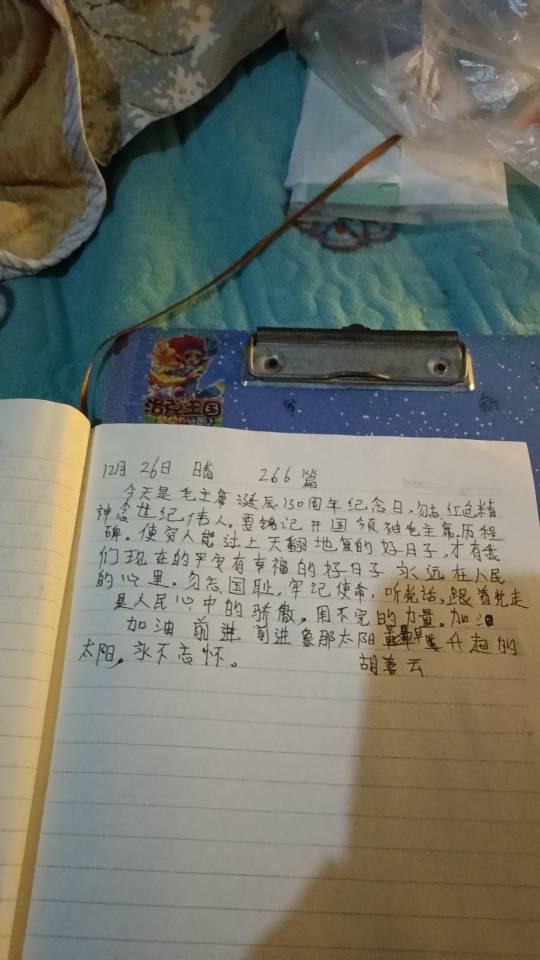 洛克王国
Date
12月 26日 晴 266篇
今天是毛主席诞辰130周年纪念日,勿忘红色精
神念世纪伟人。要铭记开国领袖毛主席,历程
碑。使穷人能过上天翻地复的好日子,才有我
们现在的平安有幸福的好日子永远在人民
的心里。勿忘国耻,牢记使命,听党话,跟着党走
是人民心中的骄傲,用不完的力量。加油
加油 前进 前进象那太阳 升起的
太阳,永不忘怀。 胡喜云